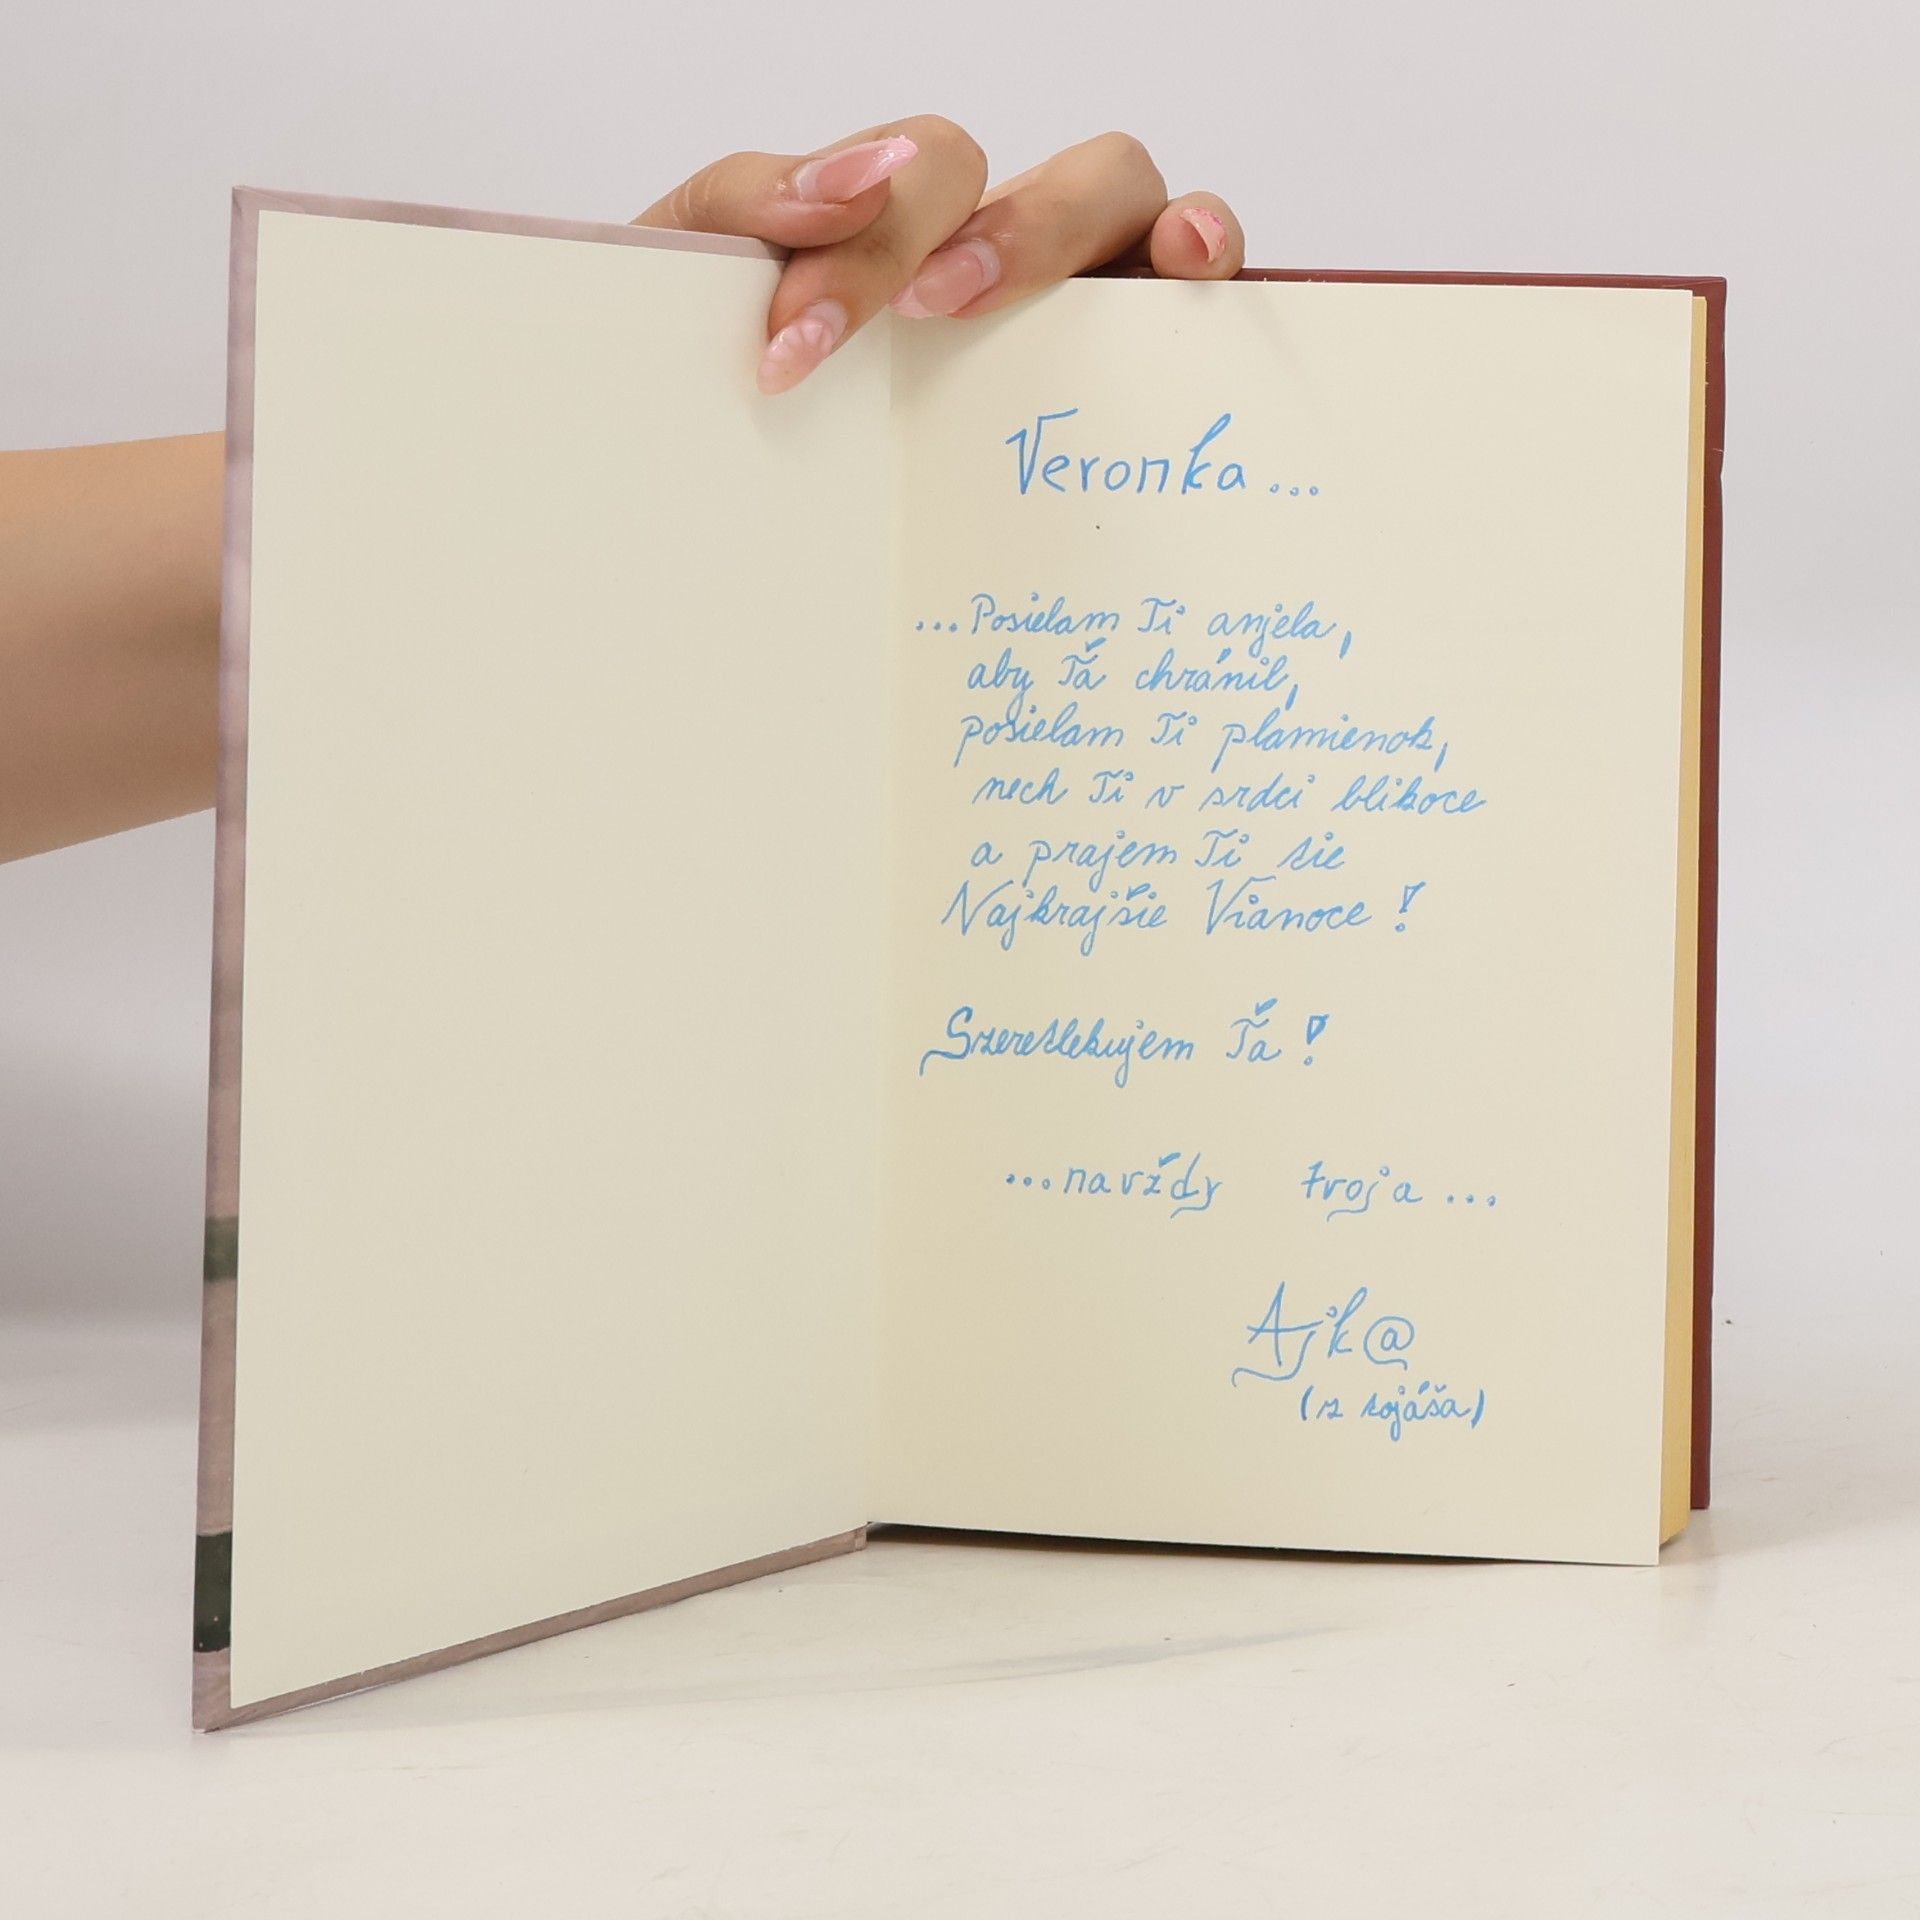 Veronka...
...Posielam Ti anjela,
aby Ťa chránil,
posielam Ti plamienok,
nech Ti v srdci blikoce
a prajem Ti tie
Najkrajšie Vianoce!
Szeretlekujem Ťa!
...navždy tvoja...
Ajk@
(z tojáša)